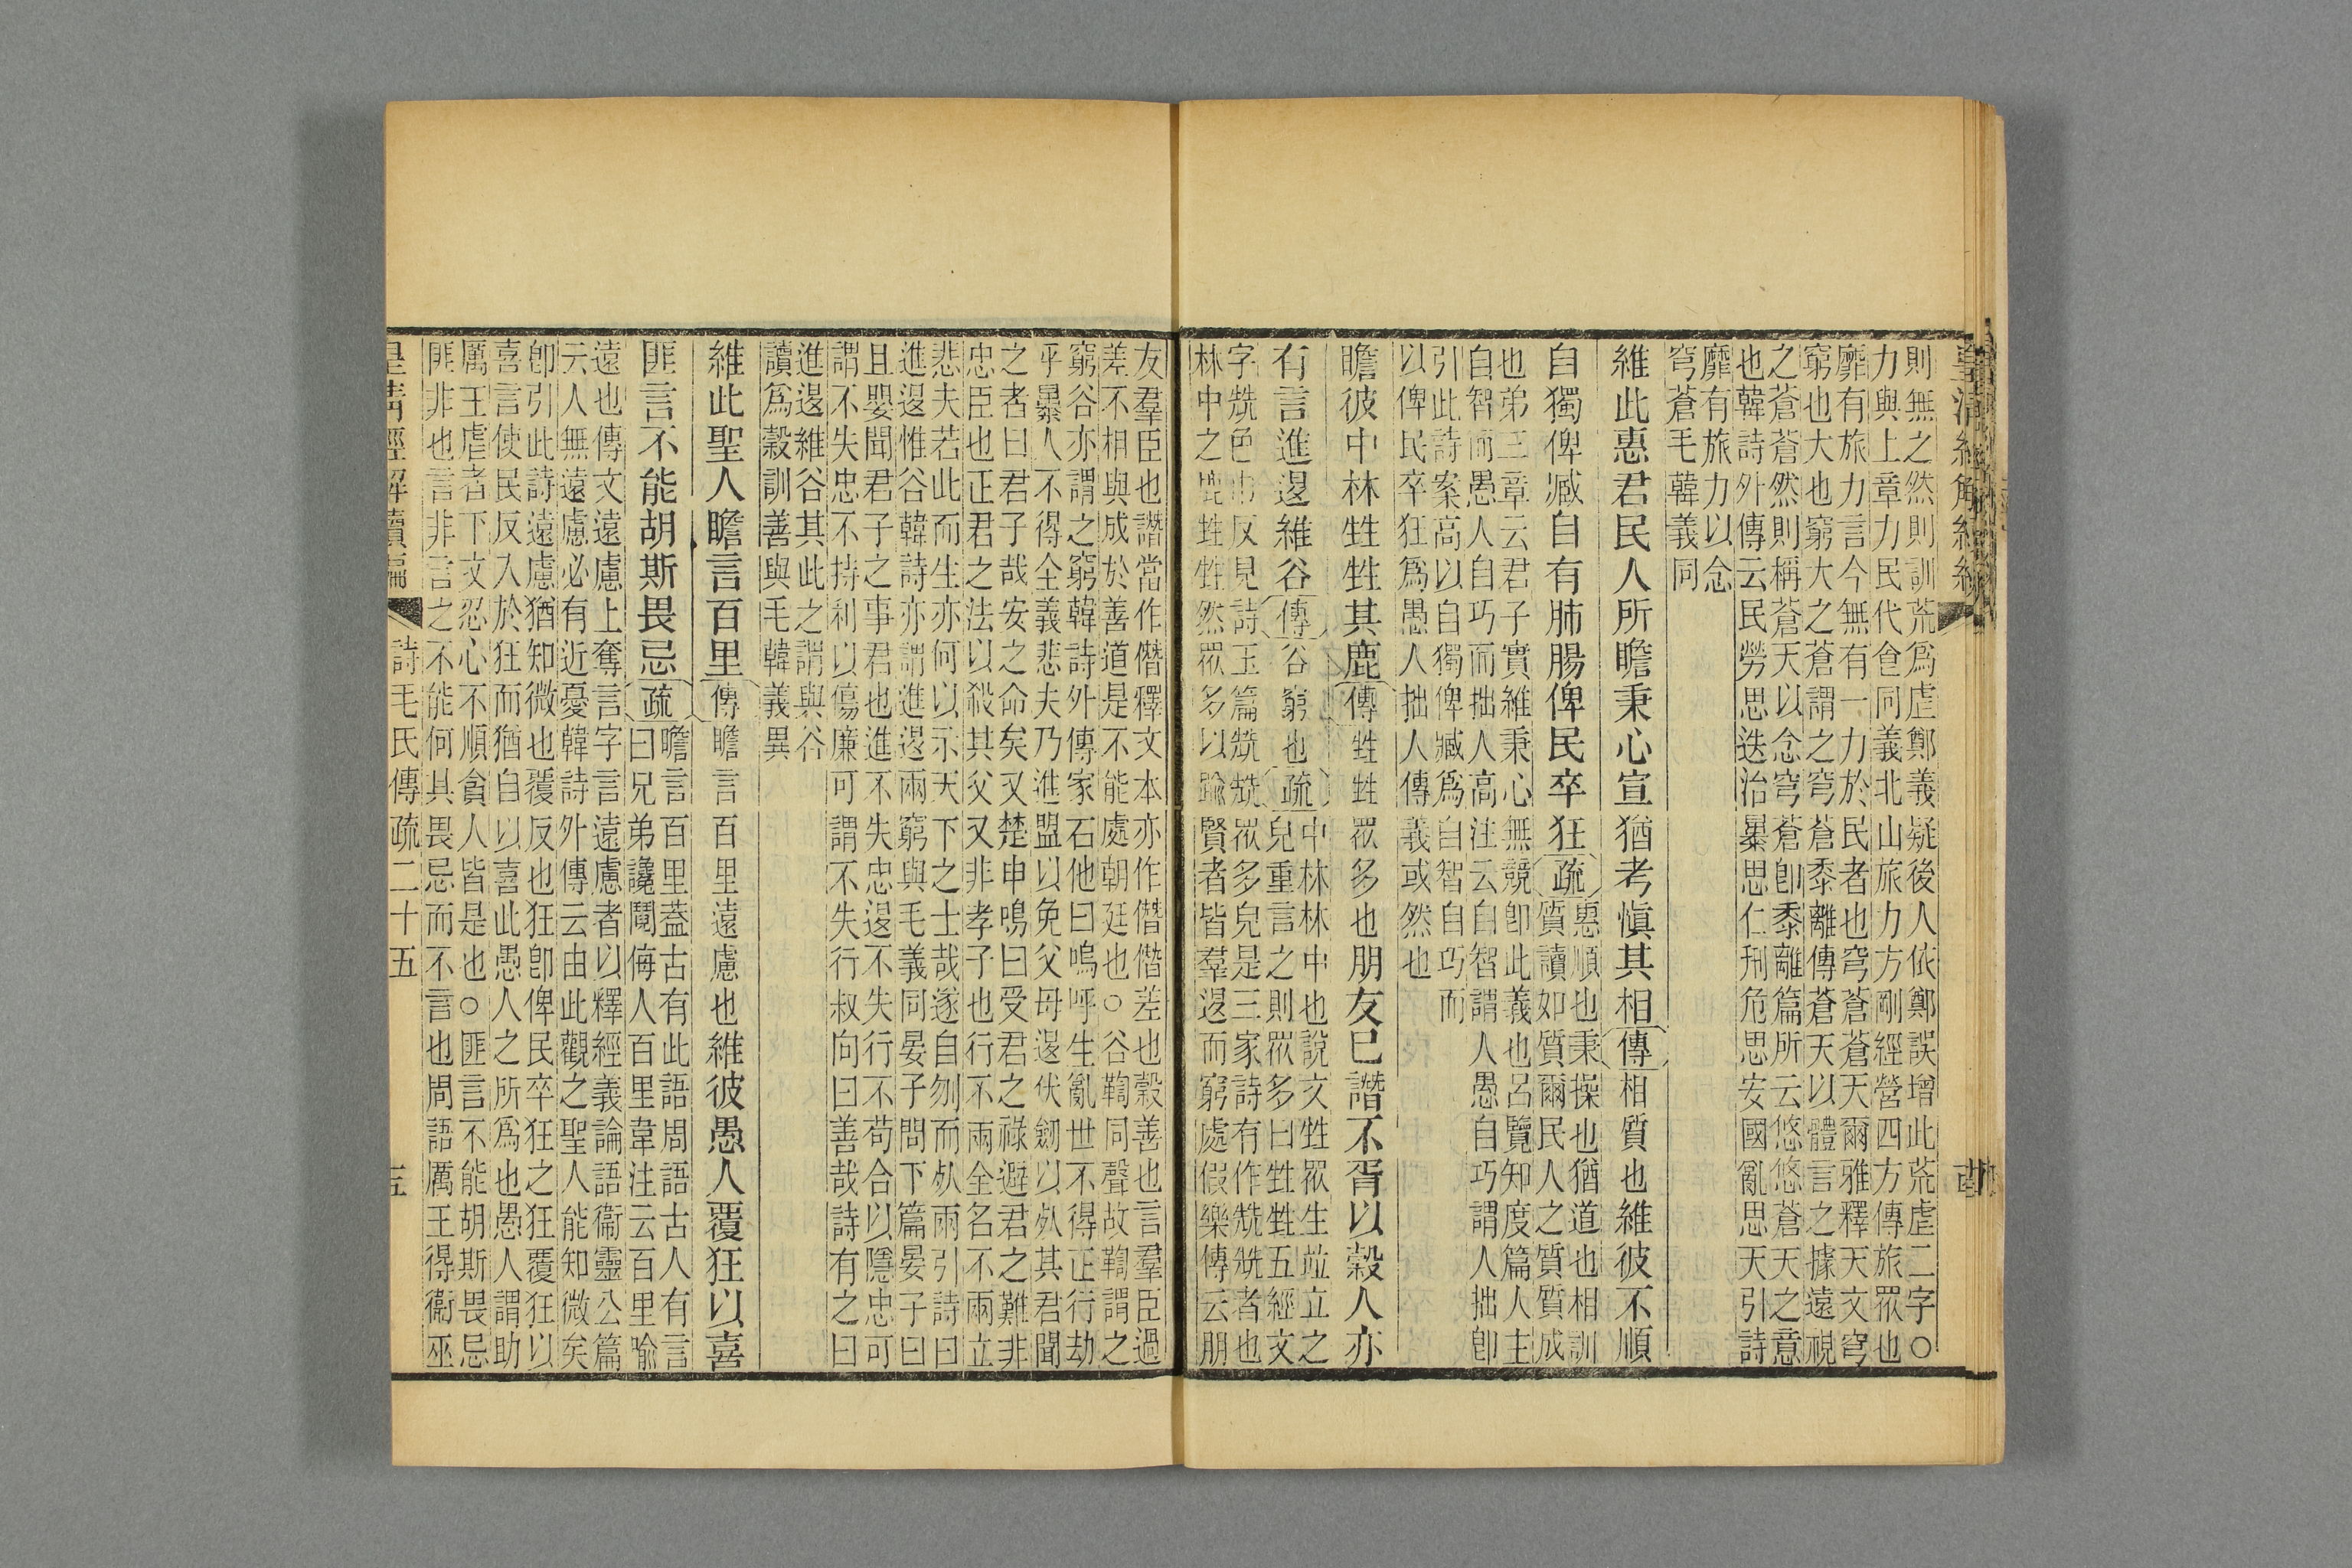 則無之然則訓荒爲虐鄭義疑後人依鄭誤增此荒虐二字○
力與上章力民代㑒同義北山旅力方剛經營四方傳旅眾也
靡有旅力言今無有一力於民者也穹蒼蒼天爾雅釋天文穹
窮也大也窮大之蒼謂之穹蒼黍離傳蒼天以體言之據遠視
之蒼蒼然則稱蒼天以念穹蒼卽黍離篇所云悠悠蒼天之意
也韓詩外傳云民勞思迭治暴思仁刑危思安國亂思天引詩
靡有旅力以念
穹蒼毛韓義同
維此惠君民人所瞻秉心宣猶考慎其相傳相質也維彼不順
自獨俾臧自有肺腸俾民卒狂疏
惠順也秉操也猶道也相訓
質讀如質爾民人之質質成
也弟三章云君子實維秉心無競卽此義也呂覽知度篇人主
自智而愚人自巧而拙人高注云自智謂人愚自巧謂人拙卽
引此詩案高以自獨俾臧爲自智自巧而
以俾民卒狂爲愚人拙人傳義或然也
瞻彼中林甡甡其鹿傳甡甡眾多也朋友已譖不胥以穀人亦
有言進退維谷傳谷窮也疏
中林林中也說文甡眾生竝立之
皃重言之則眾多曰甡甡五經文
字兟色巾反見詩玉篇兟兟眾多皃是三家詩有作兟兟者也
林中之鹿甡甡然眾多以踰賢者皆羣退而窮處假樂傳云朋
友羣臣也譖當作僭釋文本亦作僭僭差也穀善也言羣臣過
差不相與成於善道是不能處朝廷也○谷鞫同聲故鞫謂之
窮谷亦謂之窮韓詩外傳家石他曰嗚呼生亂世不得正行劫
乎暴人不得全義悲夫乃進盟以免父母退伏劒以死其君聞
之者曰君子哉安之命矣又楚申鳴曰受君之祿避君之難非
忠臣也正君之法以殺其父又非孝子也行不兩全名不兩立
悲夫若此而生亦何以示天下之士哉遂自刎而死兩引詩曰
進退惟谷韓詩亦謂進退兩窮與毛義同晏子問下篇晏子曰
且嬰聞君子之事君也進不失忠退不失行不苟合以隱忠可
謂不失忠不持利以傷廉可謂不失行叔向曰善哉詩有之曰
進退維谷其此之謂與谷
讀爲穀訓善與毛韓義異
維此聖人瞻言百里傳瞻言百里遠慮也維彼愚人覆狂以喜
匪言不能胡斯畏忌疏
瞻言百里葢古有此語周語古人有言
曰兄弟讒鬩侮人百里韋注云百里喻
遠也傳文遠慮上奪言字言遠慮者以釋經義論語衞靈公篇
云人無遠慮必有近憂韓詩外傳云由此觀之聖人能知微矣
卽引此詩遠慮猶知微也覆反也狂卽俾民卒狂之狂覆狂以
喜言使民反入於狂而猶自以喜此愚人之所爲也愚人謂助
厲王虐者下文忍心不順貪人皆是也○匪言不能胡斯畏忌
匪非也言非言之不能何其畏忌而不言也周語厲王得衞巫
皇清經解續編
詩毛氏傳疏二十五